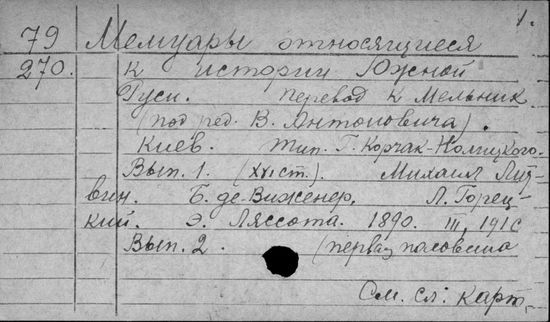 1.
79 Мемуары относящиеся
270. к истории Южной
Руси. перевод К Мельник
(под ред. В. Антоновича).
Киев. Тип. Г. Корчак-Новицкого.
Вып. 1. (XVI ст.). Михаил Лит-
вин. Б. де-Виженер. Л. Горец-
кий. Э. Ляссота. 1890. III, 191 с
Вып. 2. (первая половина
См. сл. карт.